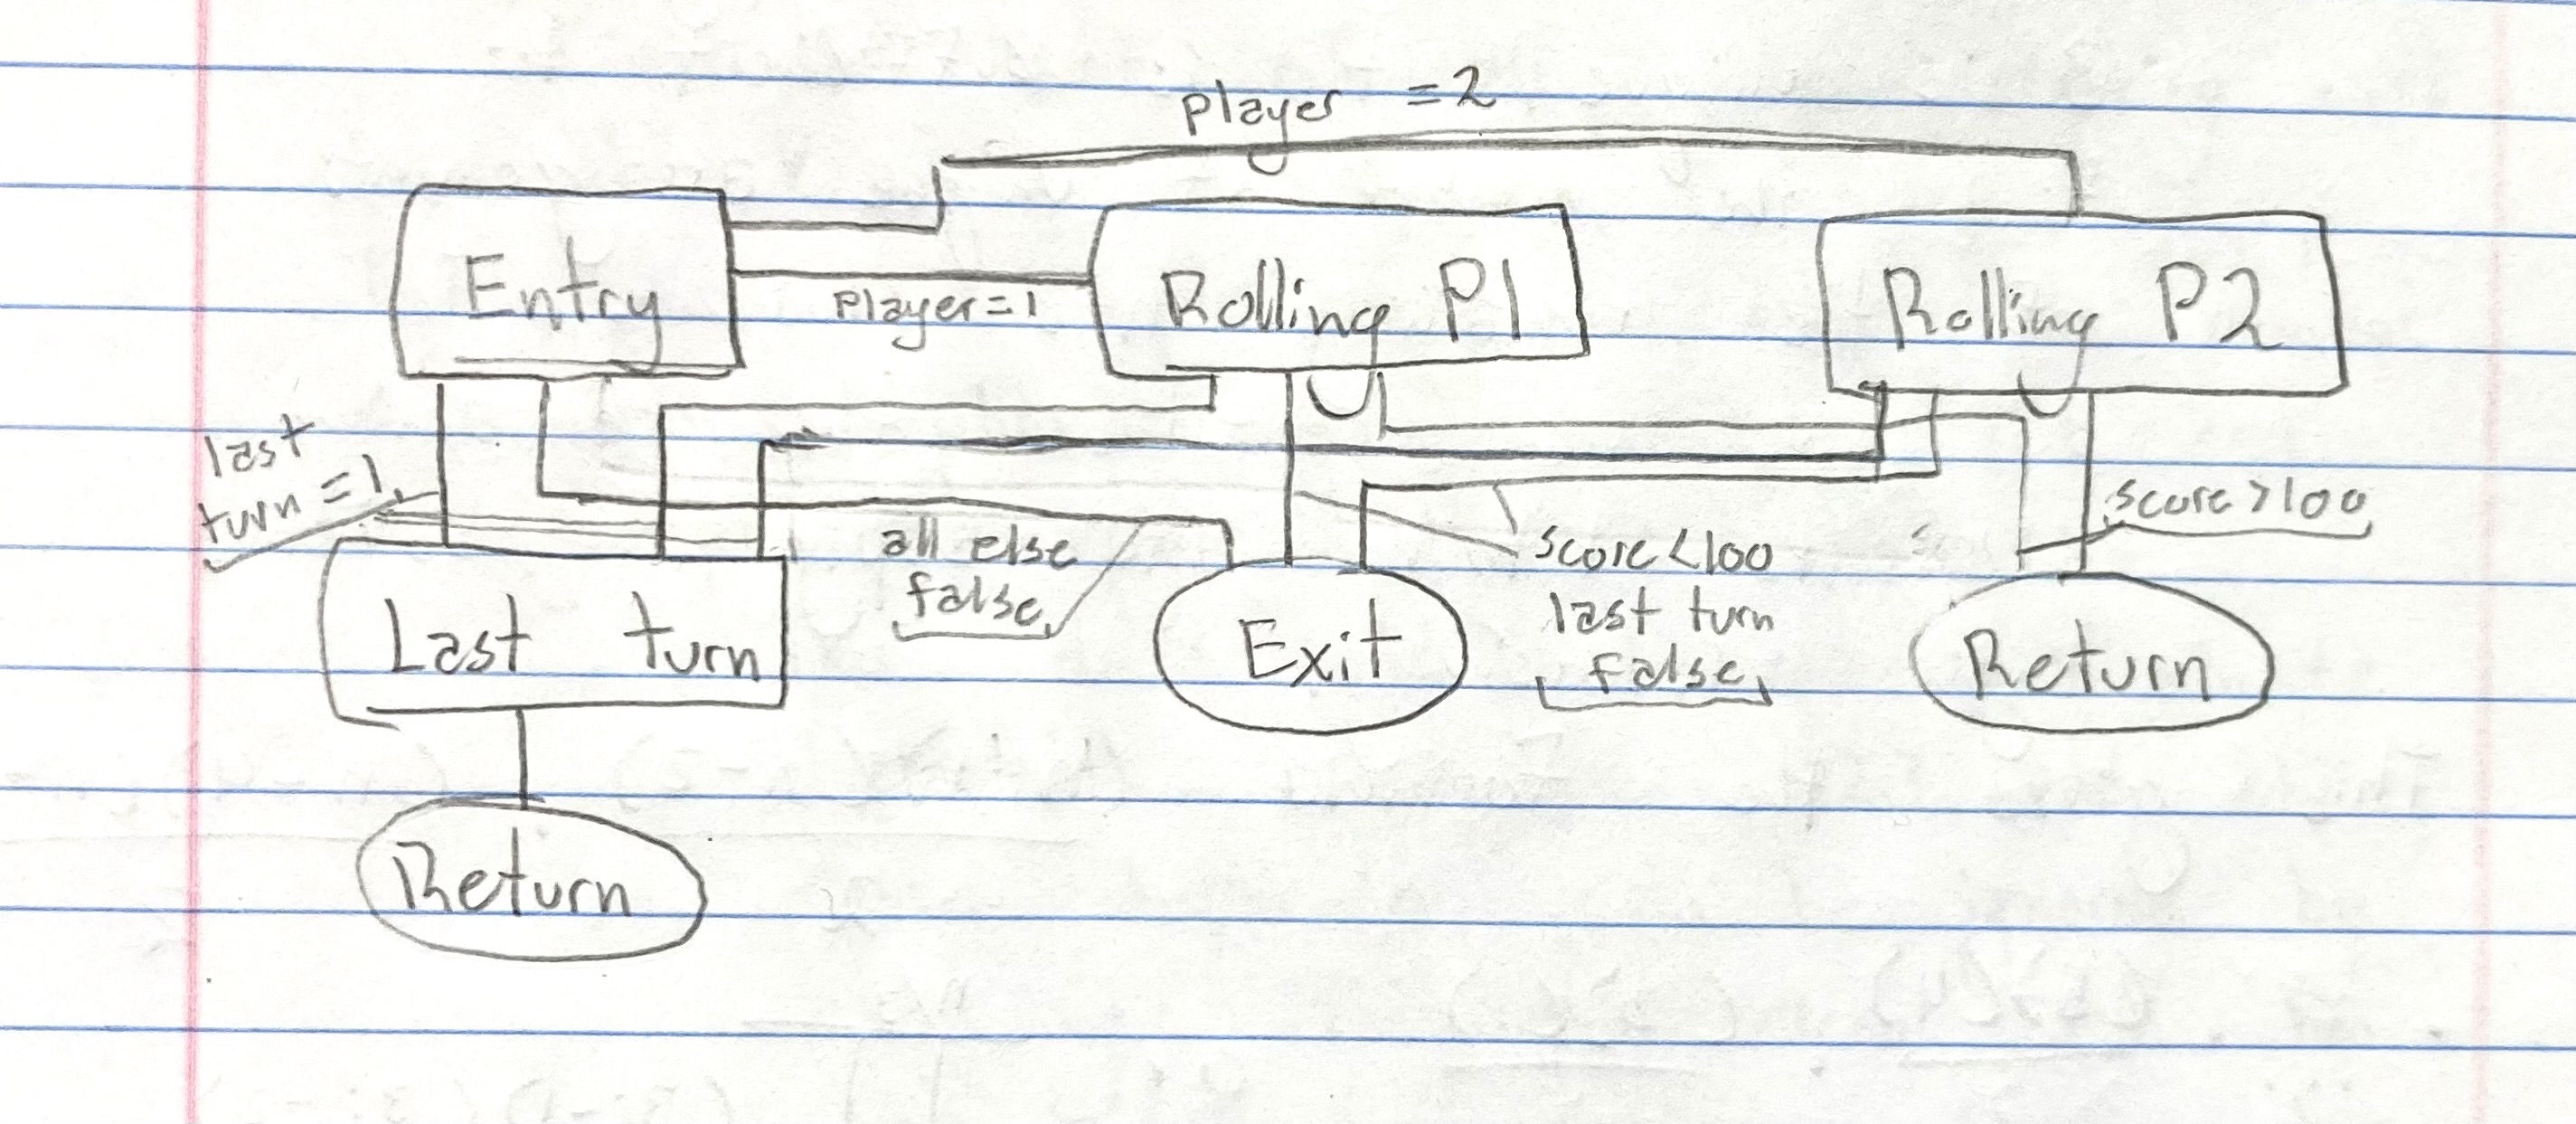 Player = 2
Entry
Player=1
Rolling P1
Rolling P2
last
turn = 1
all else
false
score<100
last turn
false
score>100
Last turn
Exit
Return
Return